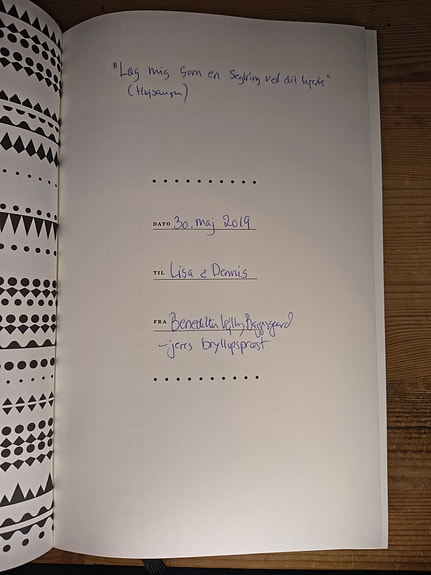 "Læg mig som en Seglring ved dit hjerte"
(Højsangen)
DATO 30. maj 2019
TIL Lisa & Dennis
FRA Benedikte Vejlby Baggesgaard
- jeres bryllupspræst